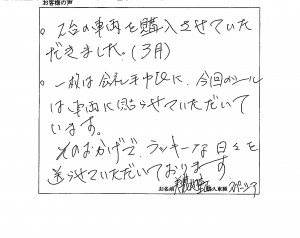 お客様の声
○ 2台の車両を購入させていた
だきました。(3月)
○ 一般は会社年中に、今回のシール
は車両に貼らせていただいて
います。
そのおかげで、ラッキーな日々を
送らせていただいております
お名前 購入車種 スペーシア